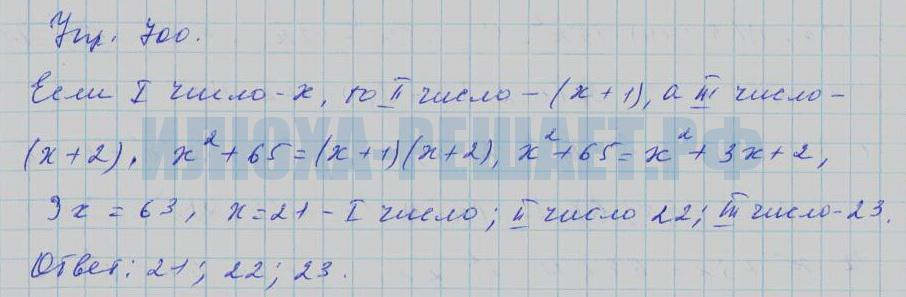 Упр. 700.
Если I число - x, то II число - (x+1), а III число -
(x+2). x²+65=(x+1)(x+2), x²+65=x²+3x+2,
3x = 63, x=21 - I число; II число 22; III число - 23.
Ответ: 21; 22; 23.
ИЛЮХА-РЕШАЕТ.РФ